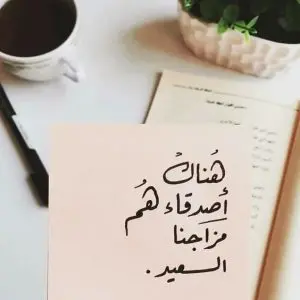 هُناكَ
أصدقاء هُم
مَزاجنا
السعيد.